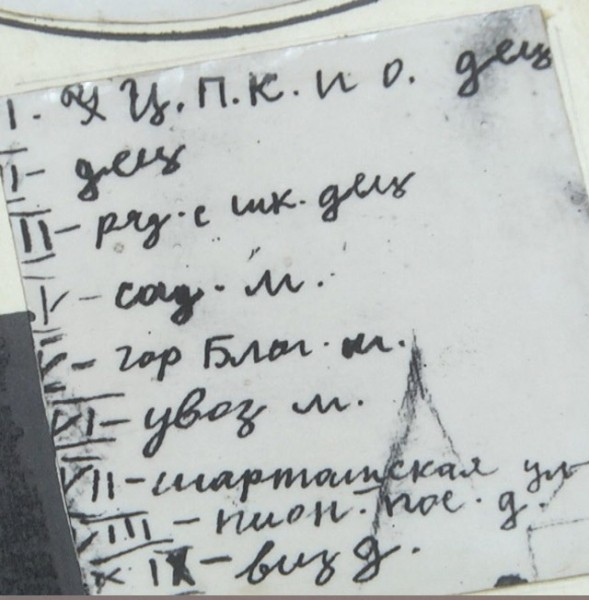 I. Ц. П. К. и о. дец
II - дец
III - ряд. с шк. дец
IV - сад. м.
V - гор Благ. м.
VI - увоз м.
VII - шарташская ул
VIII - пион. пос. д.
IX - виз д.